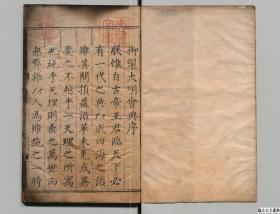 御製大明會典序
朕惟自古帝王君臨天下必
有一代之典以成四海之治
雖其間損益沿革未免或異
要之不越乎一天理之所寓
也純乎天理則垂之萬世而
無弊雜以人為雖施之一時